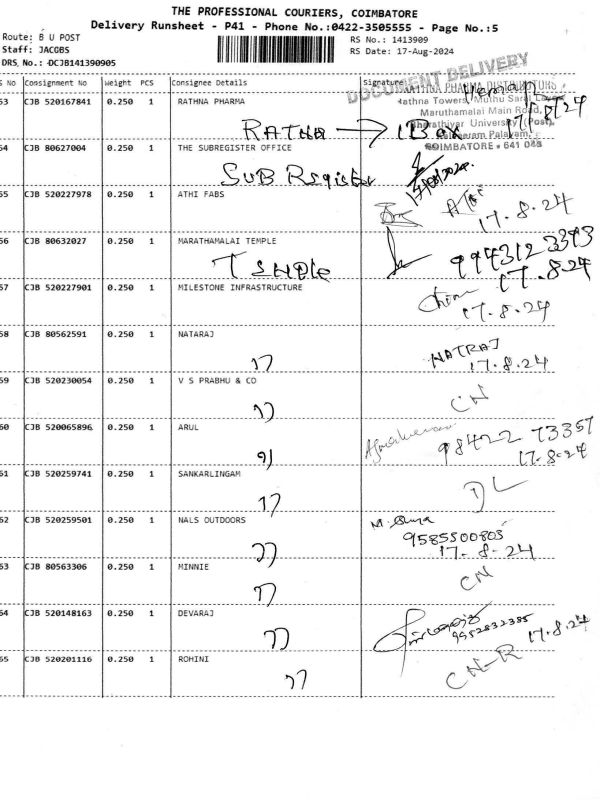 THE PROFESSIONAL COURIERS, COIMBATORE
Delivery Runsheet - P41 - Phone No.:0422-3505555 - Page No.:5
Route: B U POST
RS No.: 1413909
Staff: JACOBS
RS Date: 17-Aug-2024
DRS, No.: DCJB141390905
S No Consignment No Weight PCS Consignee Details Signature
DOCUMENT DELIVERY
53 CJB 520167841 0.250 1 RATHNA PHARMA
RATHNA PHARMA DISTRIBUTORS
Rathna Towers, Muthu
Maruthamalai Main Road,
RATHA → 1 Box
Bharathiyar University (Post),
17.8.24
COIMBATORE - 641 046
54 CJB 80627004 0.250 1 THE SUBREGISTER OFFICE
SUB Register
17/08/2024
55 CJB 520227978 0.250 1 ATHI FABS
17.8.24
56 CJB 80632027 0.250 1 MARATHAMALAI TEMPLE
9943123393
17.8.24
57 CJB 520227901 0.250 1 MILESTONE INFRASTRUCTURE
17.8.24
58 CJB 80562591 0.250 1 NATARAJ
NATRAJ
17.8.24
59 CJB 520230054 0.250 1 V S PRABHU & CO
CN
60 CJB 520065896 0.250 1 ARUL
98422 73357
17.8.24
61 CJB 520259741 0.250 1 SANKARLINGAM
DL
62 CJB 520259501 0.250 1 NALS OUTDOORS
9585500803
17-8-24
63 CJB 80563306 0.250 1 MINNIE
CN
64 CJB 520148163 0.250 1 DEVARAJ
9952832385
17.8.24
65 CJB 520201116 0.250 1 ROHINI
CN-R